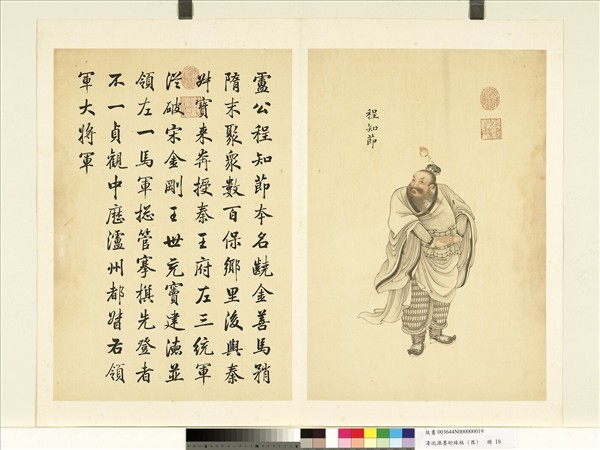 程知節
盧公程知節本名齩金善馬矟
隋末聚衆數百保鄉里後與秦
叔寶来奔授秦王府左三統軍
從破宋金剛王世充竇建德並
領左一馬軍捴管搴旗先登者
不一貞觀中歷瀘州都督右領
軍大將軍
故畫 003644N000000019
清沈源墨妙珠林（酉） 冊 19